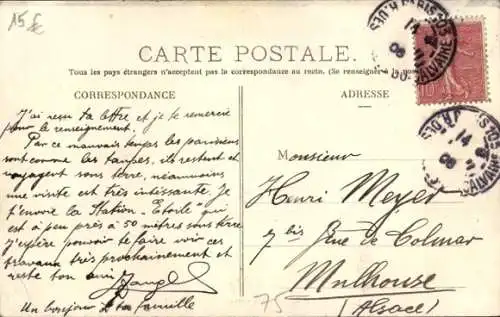 15 f
CARTE POSTALE.
Tous les pays étrangers n'acceptent pas la correspondance au recto. (Se renseigner à la poste)
CORRESPONDANCE
J'ai reçu ta lettre et je te remercie
pour le renseignement.
Par ce mauvais temps les parisiens
sont comme les taupes, ils restent et
voyagent sous terre, néanmoins
une visite est très intéssante. Je
t'envoie la Station "Etoile" qui
est à peu près à 50 mètres sous terre
J'espère pouvoir te faire voir ces
travaux très prochainement et
reste ton ami
Un bonjour à ta famille
ADRESSE
Monsieur
Henri Meyer
7 bis Rue de Colmar
Mulhouse
(Alsace)
75
10
14
08
14
08